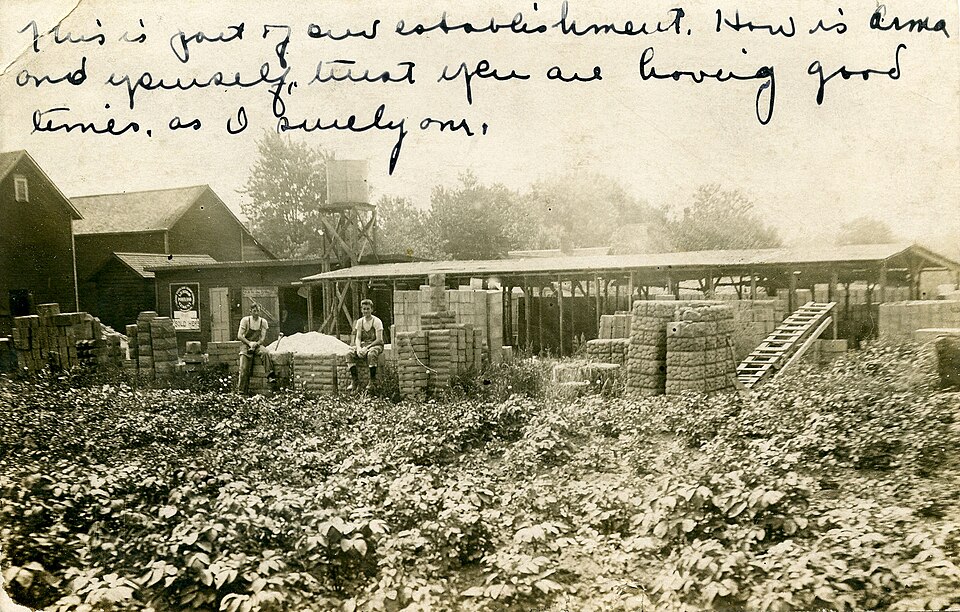 This is part of our establishment. How is Arma
and yourself, trust you are having good
times, as I surely am.
SOLD HERE